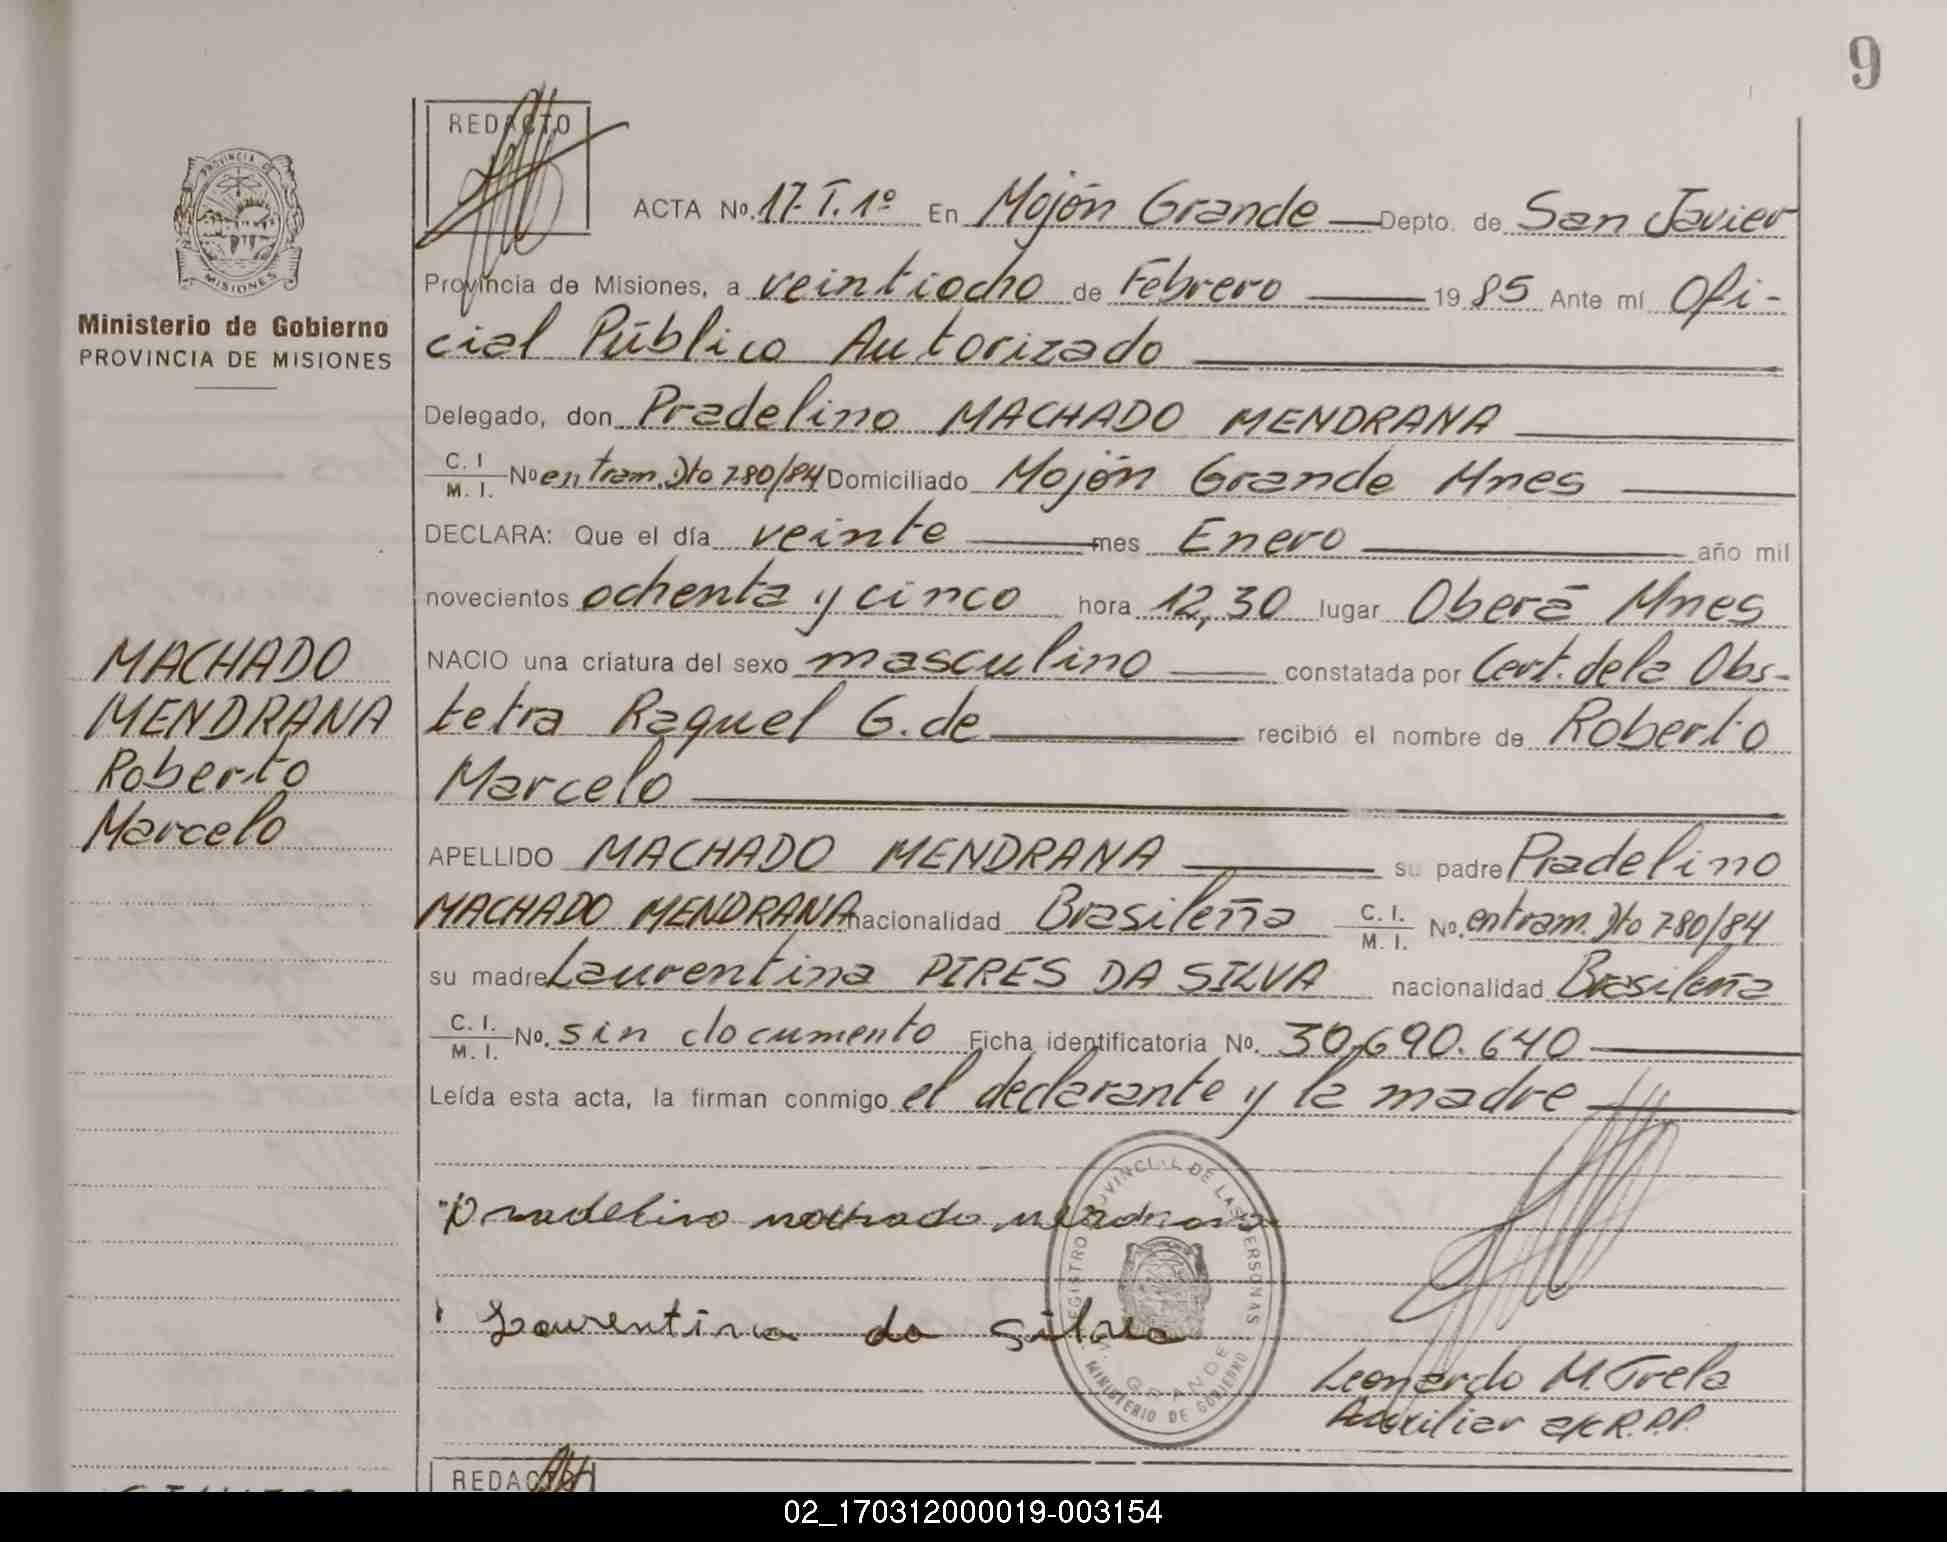 9
REDACTO
PROVINCIA DE MISIONES
Ministerio de Gobierno
PROVINCIA DE MISIONES
MACHADO
MENDRANA
Roberto
Marcelo
ACTA No. 17. T. 1º En Mojón Grande Depto. de San Javier
Provincia de Misiones, a veintiocho de Febrero 1985 Ante mí Ofi-
cial Público Autorizado
Delegado, don Pradelino MACHADO MENDRANA
C. I. M. I. No en tram. Dto 280/84 Domiciliado Mojón Grande Mnes
DECLARA: Que el día veinte mes Enero año mil
novecientos ochenta y cinco hora 12,30 lugar Oberá Mnes
NACIO una criatura del sexo masculino constatada por Cert. de la Obs-
tetra Raquel G. de recibió el nombre de Roberto
Marcelo
APELLIDO MACHADO MENDRANA su padre Pradelino
MACHADO MENDRANA nacionalidad Brasileña C. I. M. I. No. en tram. Dto 280/84
su madre Laurentina PIRES DA SILVA nacionalidad Brasileña
C. I. M. I. No. sin documento Ficha identificatoria No. 30.690.640
Leída esta acta, la firman conmigo el declarante y la madre
Pradelino machado mendrana
Laurentina da silva
REGISTRO PROVINCIAL DE LAS PERSONAS
GRANDE
MINISTERIO DE GOBIERNO
Leonardo M. Trela
Auxiliar a/c R.P.P.
REDACTO
02_170312000019-003154